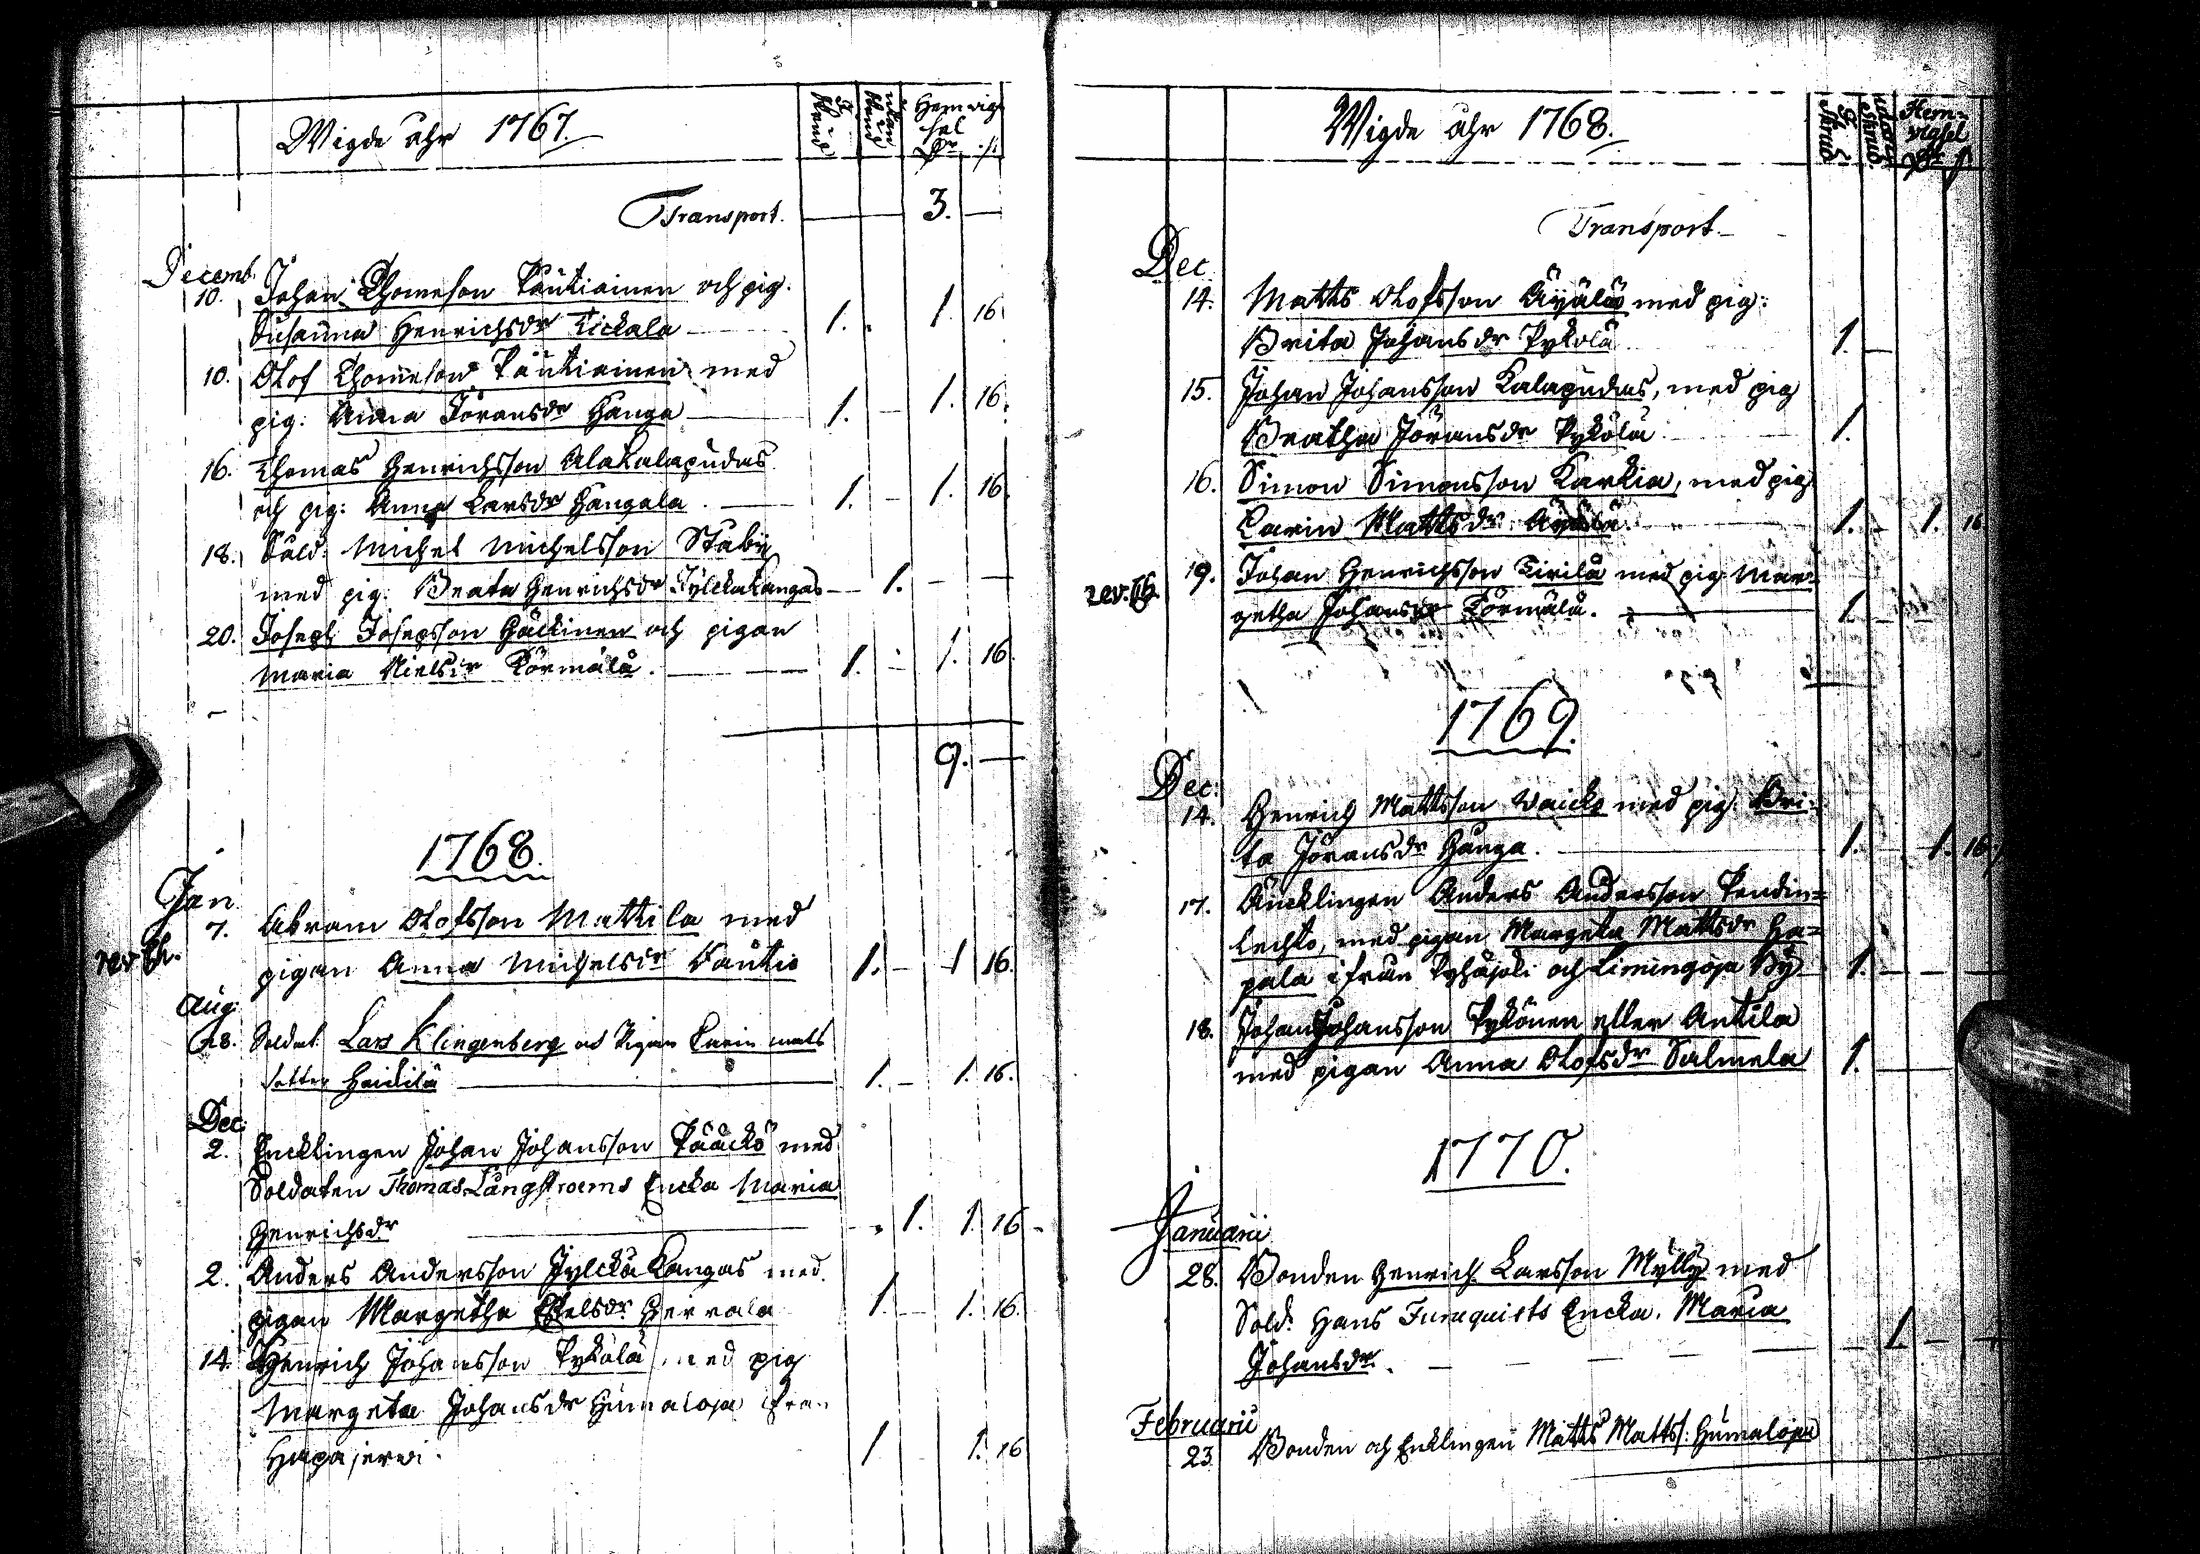 Wigde åhr 1767.
I skrud
utan skrud
Hemvigsel
Dr. s:
Transport. 3. —
Decemb.
10. Johan Thomeson Päutiainen och pig.
Susanna Henrichsdr Kickala 1. 1 16
10. Olof Thomeson Päutiainen med
pig: Anna Jöransdr Hanga 1. — 1. 16.
16. Thomas Henrichsson Alakalapudas
och pig: Anna Larsdr Hangala 1. — 1. 16.
18. Sold: Michel Michelsson Stabu
med pig: Beata Henrichsdr Jylckäkangas — 1. — —
20. Joseph Josepsson Häckinen och pigan
Maria Nielsdr Körmälä. 1. — 1. 16.
9. —
1768.
Jan
7. Abram Olofsson Mattila med
rev.
pigan Anna Michelsdr Vautio 1. — 1 16.
Aug:
28. Soldat Lars Klingenberg och Pigan Carin mats
dotter Heickilä 1. — 1. 16.
Dec:
2. Encklingen Johan Johansson Pääckö med
Soldaten Thomas Långstroems Encka Maria
Henrichsdr 1. 1. 16
2. Anders Andersson Jylckäkangas med
pigan Margetha Eskelsdr Hervala 1. — 1. 16.
14. Henrich Johansson Pykölä med pig
Margeta Johansdr Humaloja från
Hapajervi. 1 1. 16
Wigde åhr 1768.
I skrud
utan skrud
Hemvigsel
Dr
Transport —
Dec
14. Matts Olofsson Äyälä med pig:
Brita Johansdr Pykölä 1. —
15. Johan Johansson Kalapudas, med pig
Beatha Jöransdr Pykölä 1.
16. Simon Simonsson Karkia, med pig
Carin Mattsdr Äyälä 1. — 1. 16
rev. 19. Johan Henrichsson Kirilä med pig Mar-
getha Johansdr Körmälä. 1. —
1769.
Dec:
14. Henrich Mattsson Waicko med pig: Bri-
ta Jöransdr Hanga. 1. 1. 16
17. Äncklingen Anders Andersson Pendin-
lechto, med pigan Margeta Mattsdr Ha-
pala ifrån Pyhäjoki och Limingoja By 1. — — —
18. Johan Johansson Pykönen eller Antila
med pigan Anna Olofsdr Salmela 1. —
1770.
Januarii
28. Bonden Henrich Larsson Mylly med
Sold: Hans Furuquists Encka. Maria
Johansdr. 1. — —
Februarii
23 Bonden och Enklingen Matts Mattss: Humaloja